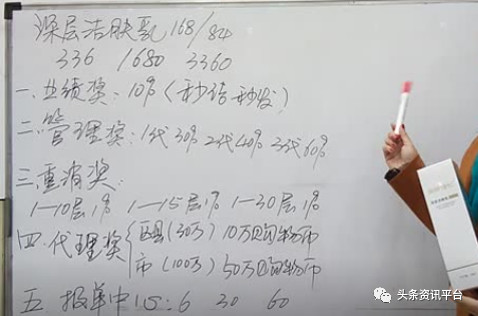 深层洁肤乳 168/84
336 1680 3360
一.业绩奖:10%(秒结秒发)
二.管理奖:1代30% 2代40% 3代60%
三.重消奖:
1—10层1% 1—15层1% 1—30层1%
四.代理奖{区县(30万)10万回购物币
市(100万)50万回购物币
五.报单中心:6 30 60
头条资讯平台